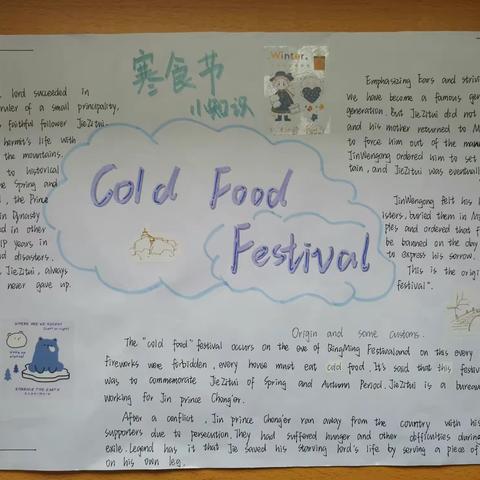 寒食节
小知识
Winter.
lord succeeded in
ruler of a small principality,
faithful follower JieZitui,
hermit's life with
the mountains.
to historical
Spring and
, the Prince
in Dynasty
and in other
19 years in
nd disasters.
JieZitui, always
never gave up.
Cold Food
Festival
Emphasizing Ears and strivi
we have become a famous gen
generation. But JieZitui did not
and his mother returned to M
to force him out of the mou
JinWengong ordered him to set
tain, and JieZitui was eventuall
JinWengong felt his l
isters, buried them in M
ples and ordered that f
be banned on the day
to express his sorrow.
This is the origi
festival".
WHERE ARE WE RECENT
EMBRACE THE EARTH
Origin and some customs.
The "cold food" festival occurs on the eve of QingMing Festivaland on this every
fireworks were forbidden, every house must eat cold food. It's said that this festiva
was to commemorate JieZitui of Spring and Autumn Period. JieZitui is a bureau
working for Jin prince Chong'er.
After a conflict, Jin prince Chong'er ran away from the country with his
supporters due to persecution. They had suffered hunger and other difficulties during
exile. Legend has it that Jie saved his starving lord's life by serving a piece of
on his own leg.